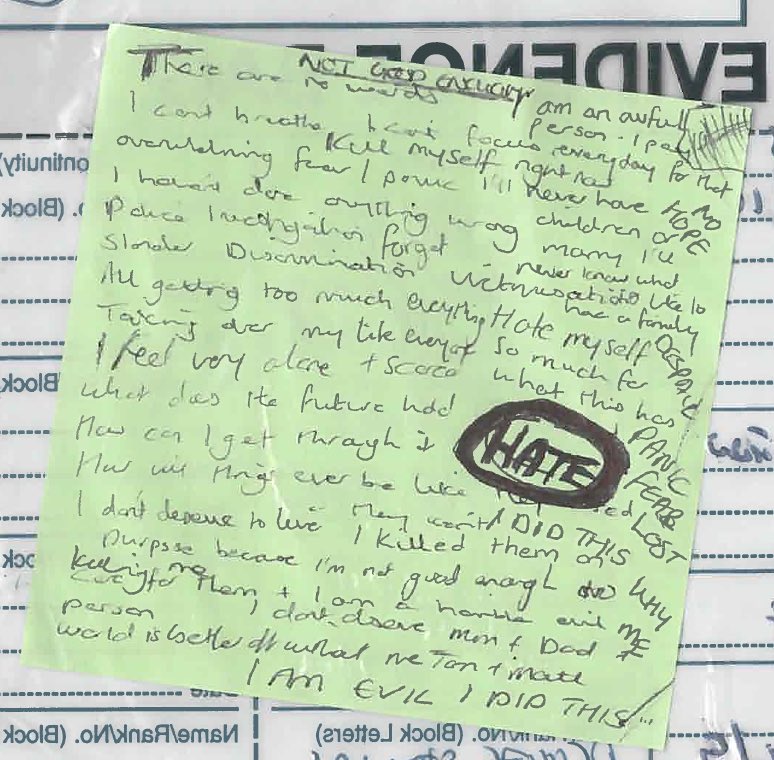 EVIDENCE
NOT GOOD ENOUGH
There are no words
I am an awful person. I pay everyday for that
I can't breathe I can't focus
Kill myself right now
overwhelming fear / panic I'll never have children or marry
NO HOPE
I haven't done anything wrong
I'll never know what it's like to have a family
Police investigation forget
Slander Discrimination victimisation
All getting too much everything
Hate myself so much for what this has
DESPAIR
Taking over my life everyday
I feel very alone + scared
what does the future hold
PANIC
How can I get through it
HATE
FEAR
How will things ever be like they
LOST
I DID THIS
I don't deserve to live I killed them on
purpose because I'm not good enough to
WHY ME
care for them + I am a horrible evil
person I don't deserve mum + Dad +
Killing me
world is better off without me
I AM EVIL I DID THIS
Name/Rank/No. (Block
/No. (Block Letters)
o. (Block